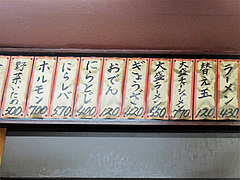 ラーメン 430
替え玉 120
大盛チャーシューメン 770
大盛ラーメン 550
ぎょうざ 420
おでん 120
にらとじ 400
にらレバ 570
ホルモン 700
野菜いため 500